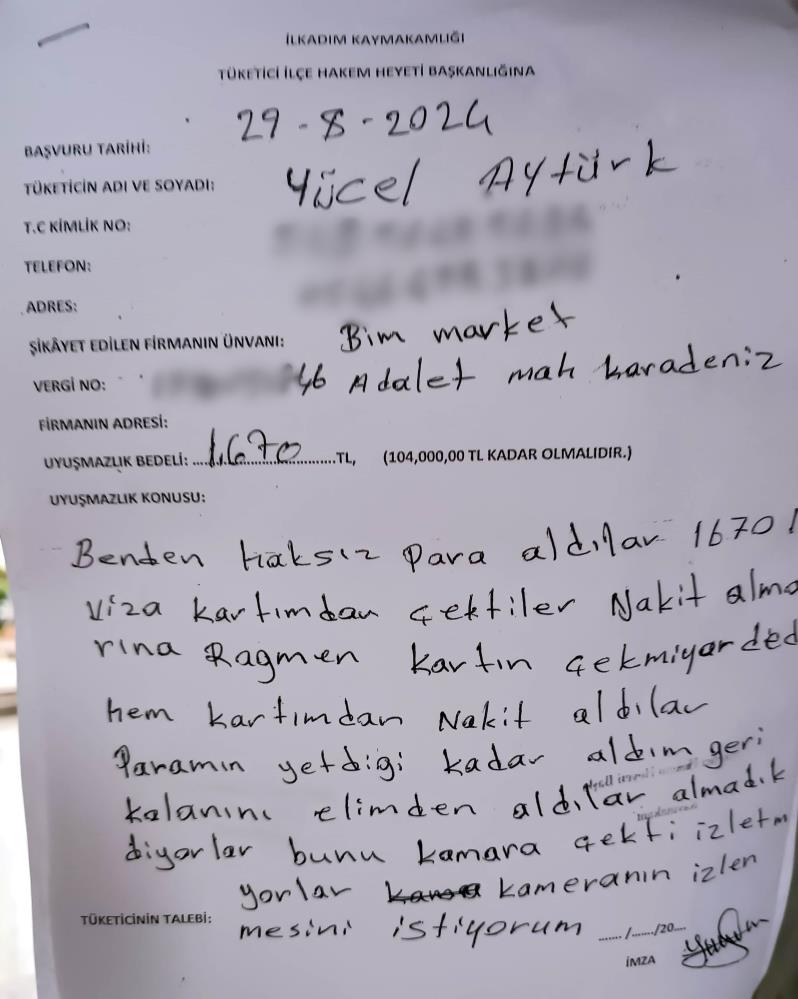 İLKADIM KAYMAKAMLIĞI
TÜKETİCİ İLÇE HAKEM HEYETİ BAŞKANLIĞINA
BAŞVURU TARİHİ: 29-8-2024
TÜKETİCİN ADI VE SOYADI: Yücel Aytürk
T.C KİMLİK NO:
TELEFON:
ADRES:
ŞİKÂYET EDİLEN FİRMANIN ÜNVANI: Bim market
VERGİ NO: 46 Adalet mah karadeniz
FİRMANIN ADRESİ:
UYUŞMAZLIK BEDELİ: ....1.670....TL, (104,000,00 TL KADAR OLMALIDIR.)
UYUŞMAZLIK KONUSU:
Benden haksız para aldılar 1670
viza kartımdan çektiler Nakit alma
rına Ragmen kartın çekmiyar ded
hem kartımdan Nakit aldılar
Paramın yetdigi kadar aldım geri
kalanını elimden aldılar almadık
diyorlar bunu kamara çekti izletm
yorlar kameranın izlen
TÜKETİCİNİN TALEBİ: mesini istiyorum ....../....../20....
İMZA